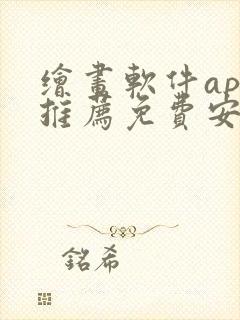 繪畫軟件ap
推薦免費安
銘希